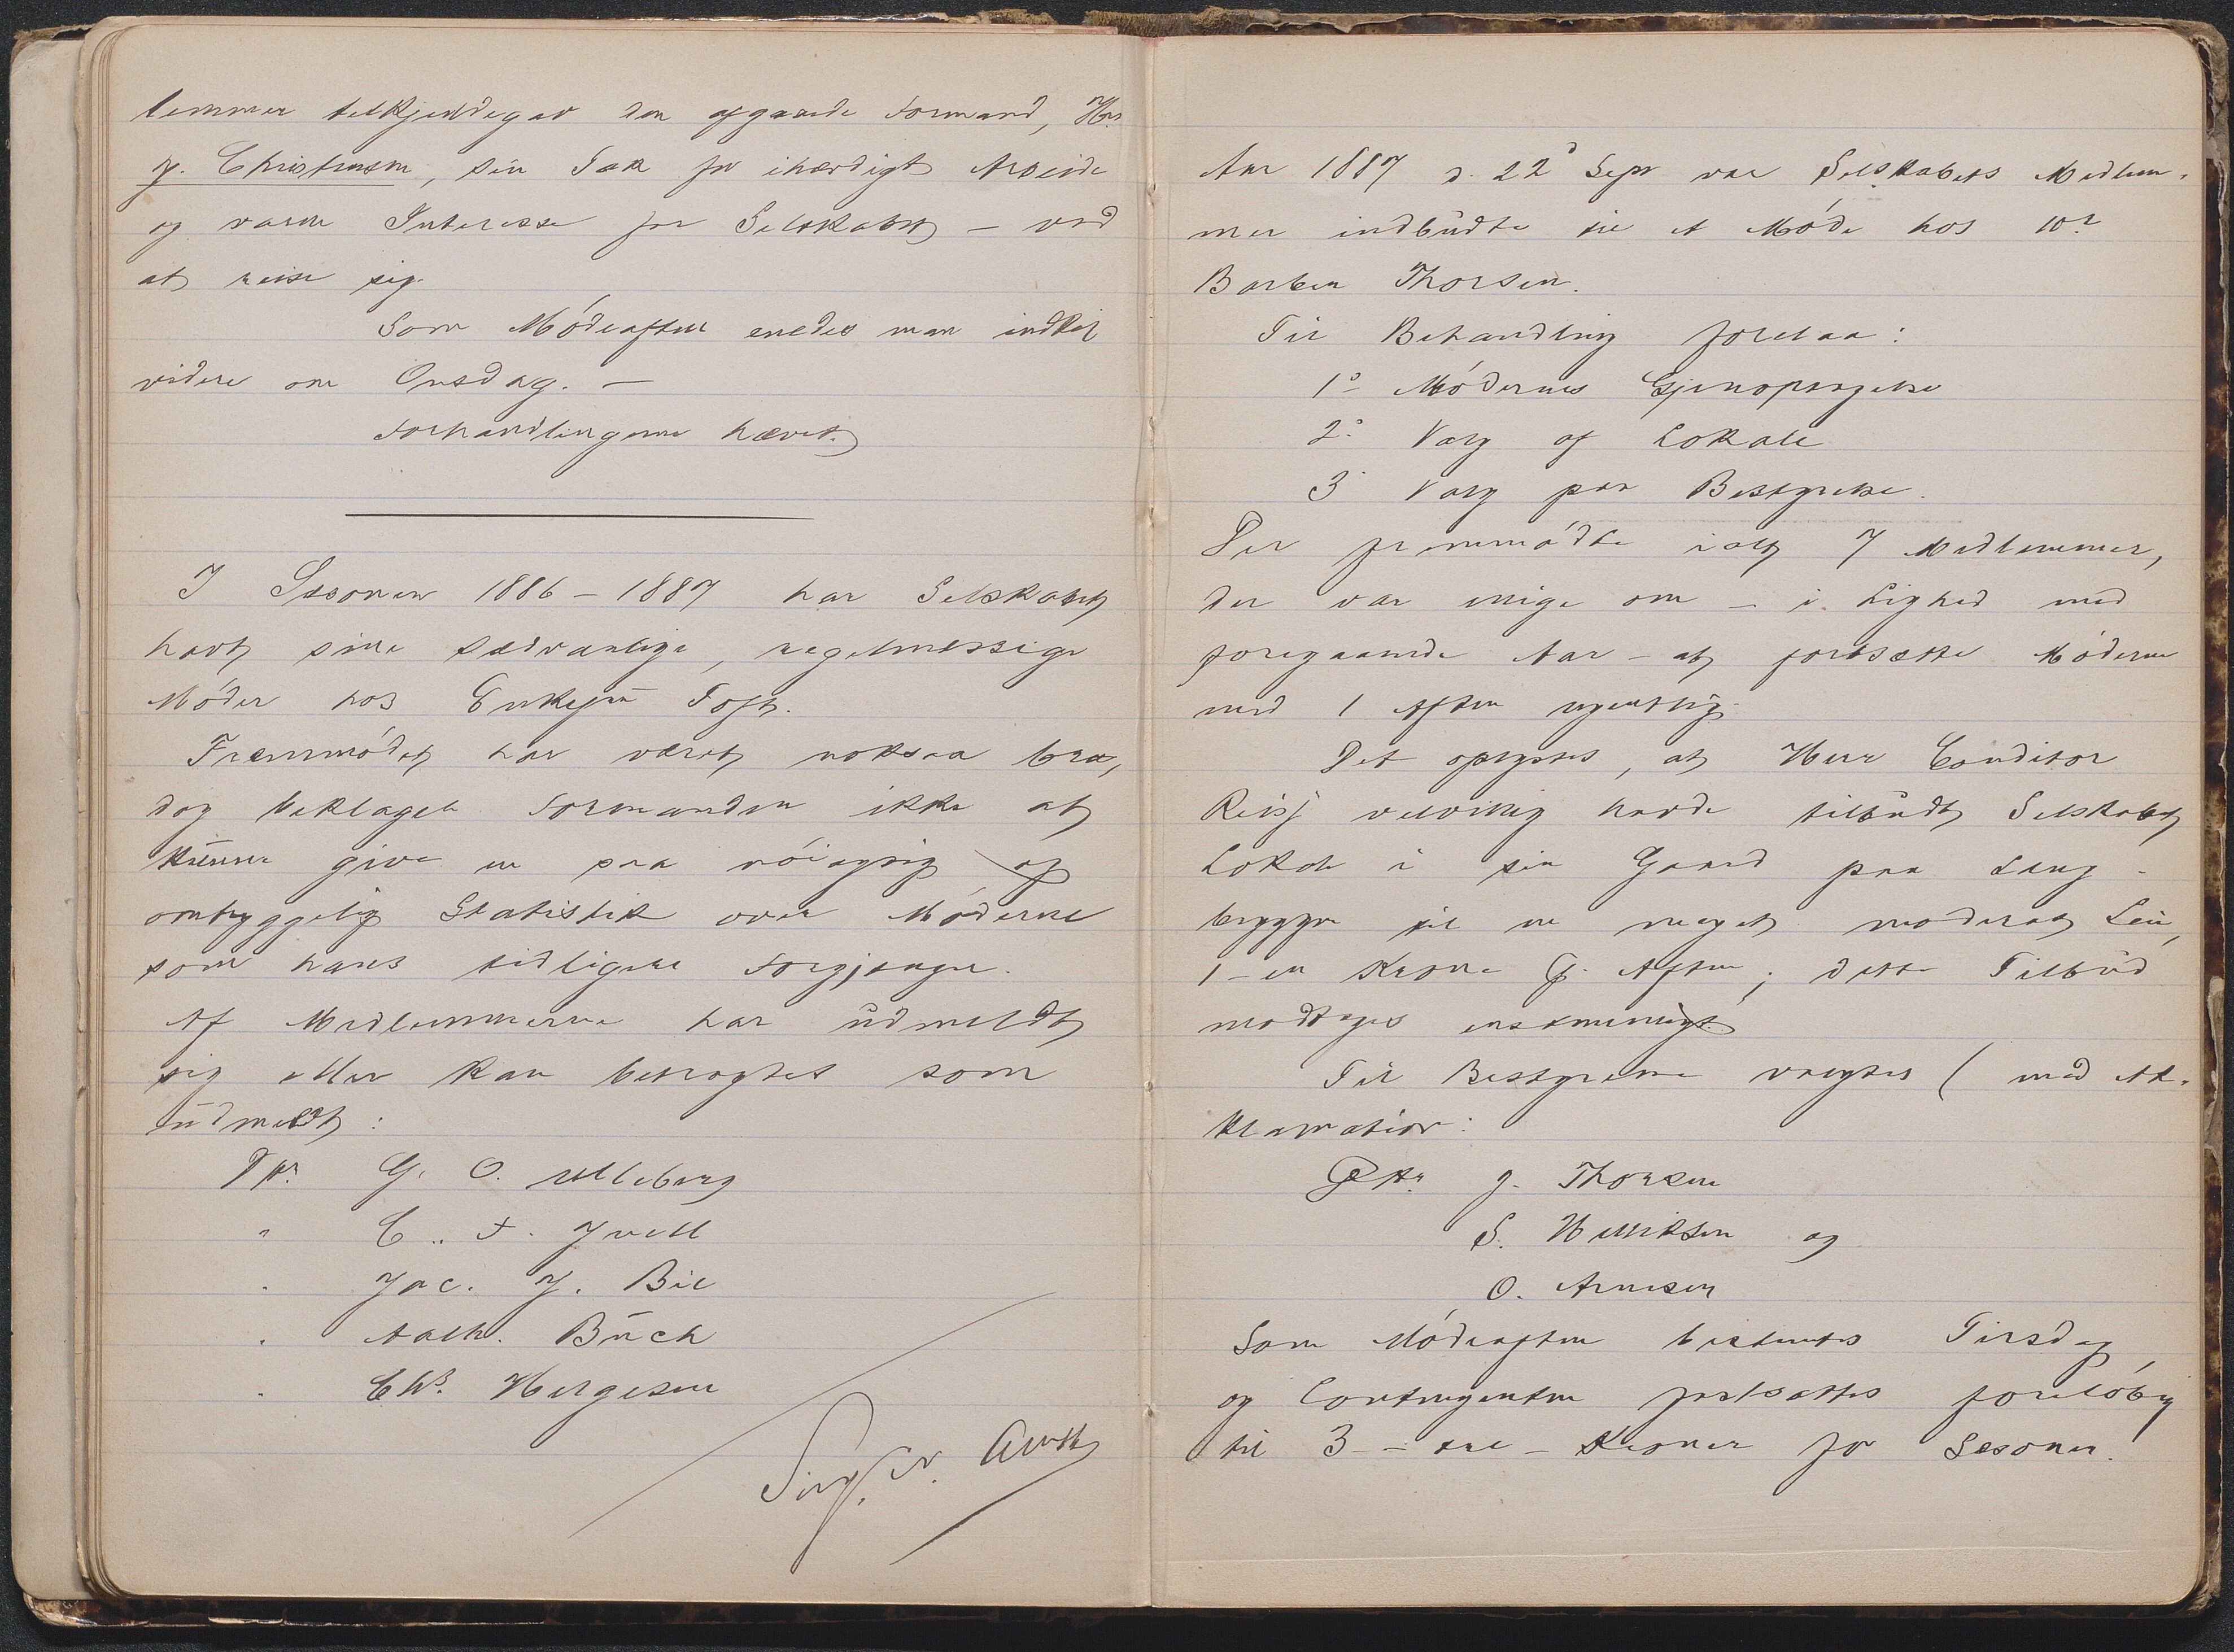 lemmer tilkjendegav den afgaaede Formand, Hr.
J. Christensen, sin Tak for ihærdigt Arbeide
og varm Interesse for Selskabet – ved
at reise sig.
Som Mødeaften enedes man indtil
videre om Onsdag. –
Forhandlingerne hævet.
I Sesonen 1886 – 1887 har Selskabet
havt sine sædvanlige, regelmessige
Møder hos Enkefru Toft.
Fremmødet har været noksaa bra,
dog beklager Formanden ikke at
kunne give en saa nøiagtig og
omhyggelig Statistik over Møderne
som hans tidligere Forgjænger.
Af Medlemmerne har udmeldt
sig eller kan betragtes som
udmeldt:
DHr. G. O. Ulleberg
" C. F. Juell
" Jac. J. Bie
" Aath. Buch
" Chr. Hergesen
Sigf. N.
Aar 1887 d. 22d Sepr var Selskabets Medlem-
mer indbudte til et Møde hos Hr.
Barber Thorsen.
Til Behandling forelaa:
1o Mødernes Gjenoptagelse
2o Valg af Lokale
3o Valg paa Bestyrelse.
Der fremmødte ialt 7 Medlemmer,
der var enige om – i Lighed med
foregaaende Aar – at fortsætte Møderne
med 1 Aften ugentlig.
Det oplystes, at Herr Conditor
Reisz velvillig havde tilbudt Selskabet
Lokale i sin Gaard paa Lang-
bryggen til en meget moderat Leie,
1 – en Krone p. Aften; dette Tilbud
modtoges enstemmigt.
Til Bestyrelse valgtes (med Ak-
klamation:
DHr. J. Thorsen
S. Henriksen og
O. Arnesen
Som Mødeaften bestemtes Tirsdag,
og Contingenten fastsattes foreløbig
til 3 – tre – Kroner for Sesonen.